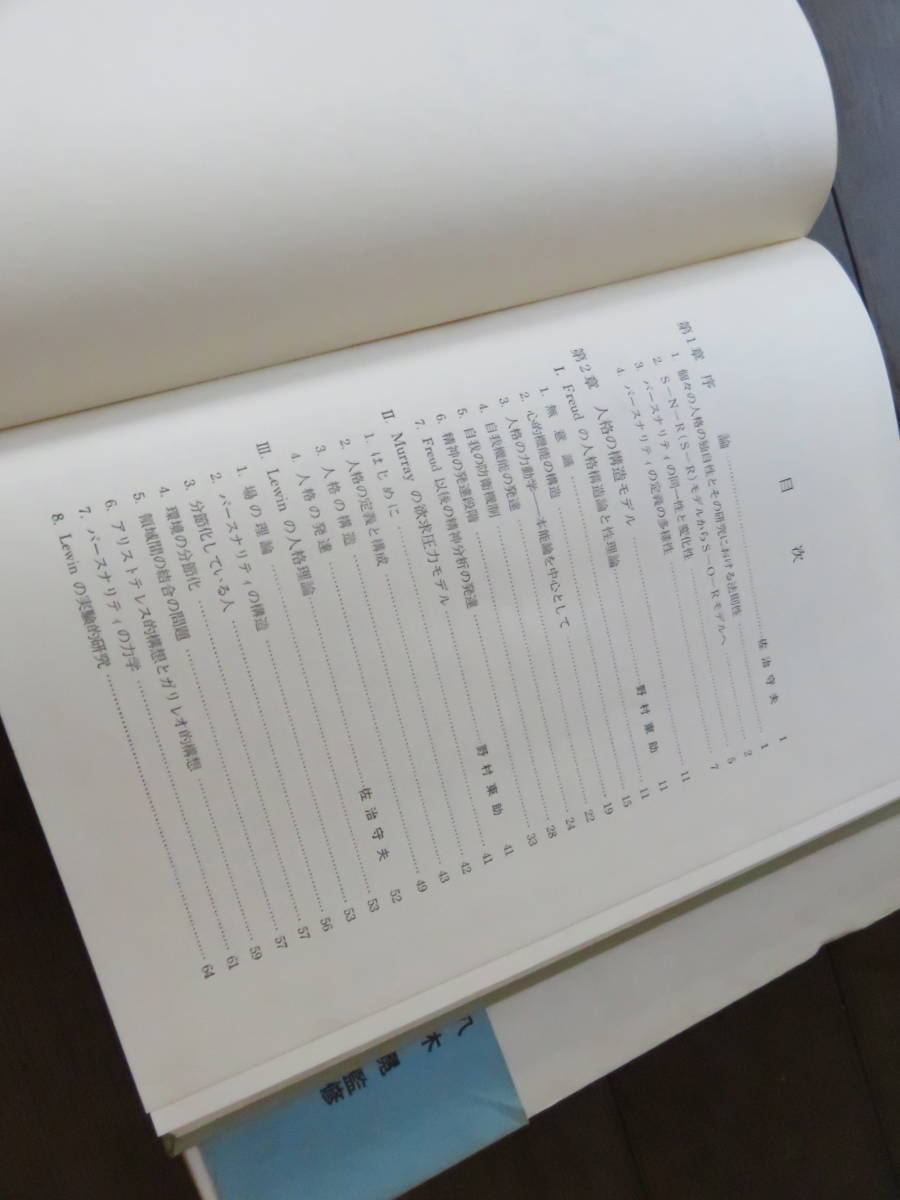 目　次
第1章　序　　論 …… 佐治守夫 1
1. 個々の人格の独自性とその研究における法則性 …… 1
2. S－N－R(S－R)モデルからS－O－Rモデルへ …… 2
3. パースナリティの同一性と変化性 …… 5
4. パースナリティの定義の多様性 …… 7
第2章　人格の構造モデル …… 11
I. Freud の人格構造論と性理論 …… 野村東助 11
1. 無意識 …… 11
2. 心的機能の構造 …… 15
3. 人格の力動学――本能論を中心として …… 19
4. 自我機能の発達 …… 22
5. 自我の防衛機制 …… 24
6. 精神の発達段階 …… 28
7. Freud 以後の精神分析の発達 …… 33
II. Murray の欲求圧力モデル …… 野村東助 41
1. はじめに …… 41
2. 人格の定義と構成 …… 42
3. 人格の構造 …… 43
4. 人格の発達 …… 49
III. Lewin の人格理論 …… 佐治守夫 52
1. 場の理論 …… 53
2. パースナリティの構造 …… 53
3. 分節化している人 …… 56
4. 環境の分節化 …… 57
5. 領域間の結合の問題 …… 57
6. アリストテレス的構想とガリレオ的構想 …… 59
7. パースナリティの力学 …… 61
8. Lewin の実験的研究 …… 64
八木　冕監修